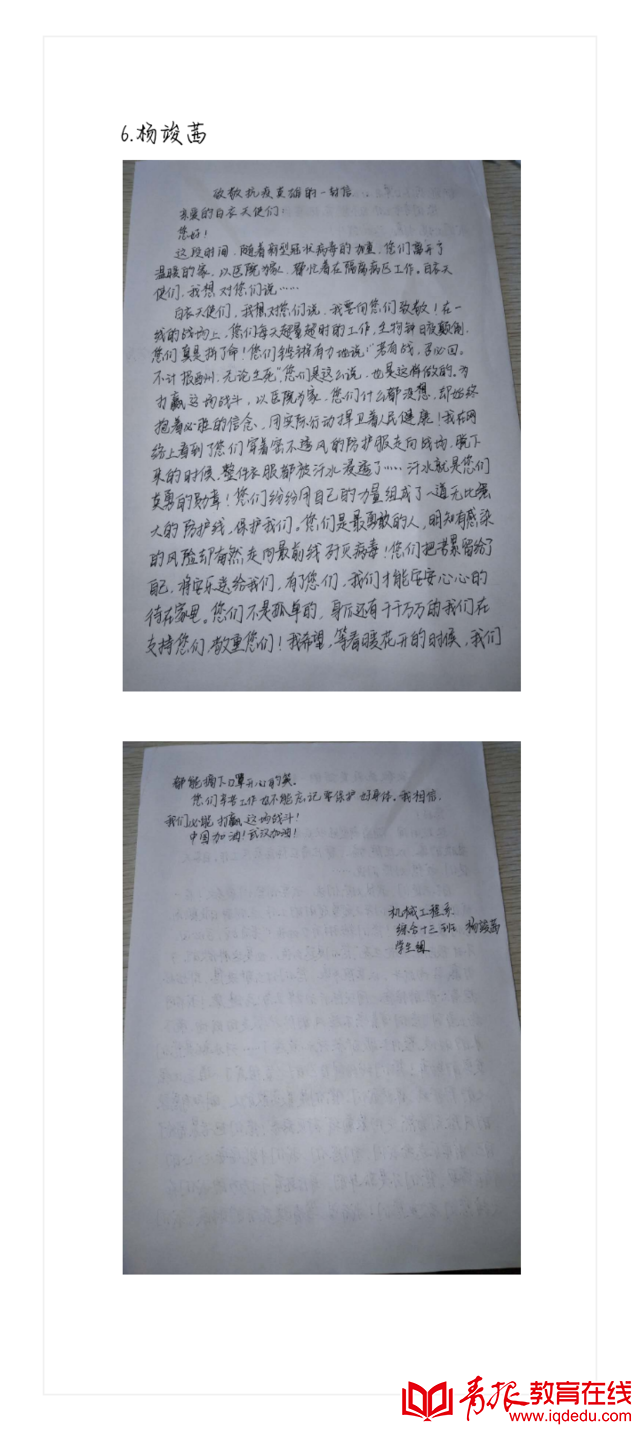 6.杨竣茜
致敬抗疫英雄的一封信
亲爱的白衣天使们
您好！
这段时间，随着新型冠状病毒的加重，您们离开了
温暖的家，以医院为家，整忙着在隔离病区工作。白衣天
使们，我想对您们说……
白衣天使们，我想对您们说，我要向您们致敬！在一
线的战场上，您们每天超量超时的工作，生物钟日夜颠倒，
您们真是拼了命！您们铿锵有力地说：“若有战，召必回。
不计报酬，无论生死”您们是这么说，也是这样做的。为
打赢这场战斗，以医院为家，您们什么都没想，却始终
抱着必胜的信念，用实际行动捍卫着人民健康！我在网
络上看到了您们穿着密不透风的防护服走向战场，脱下
来的时候，整件衣服都被汗水浸透了……汗水就是您们
英勇的勋章！您们纷纷用自己的力量组成了一道无比强
大的防护线，保护我们。您们是最勇敢的人，明知有感染
的风险却毅然走向最前线歼灭病毒！您们把苦累留给了
自己，将安乐送给我们，有了您们，我们才能安安心心的
待在家里。您们不是孤单的，身后还有千千万万的我们在
支持您们，敬重您们！我希望，等春暖花开的时候，我们
都能摘下口罩开心的笑。
您们辛苦工作也不能忘记要保护好身体。我相信，
我们必能打赢这场战斗！
中国加油！武汉加油！
机械工程系
综合十三班 杨竣茜
学生
青报教育在线
www.iqdedu.com